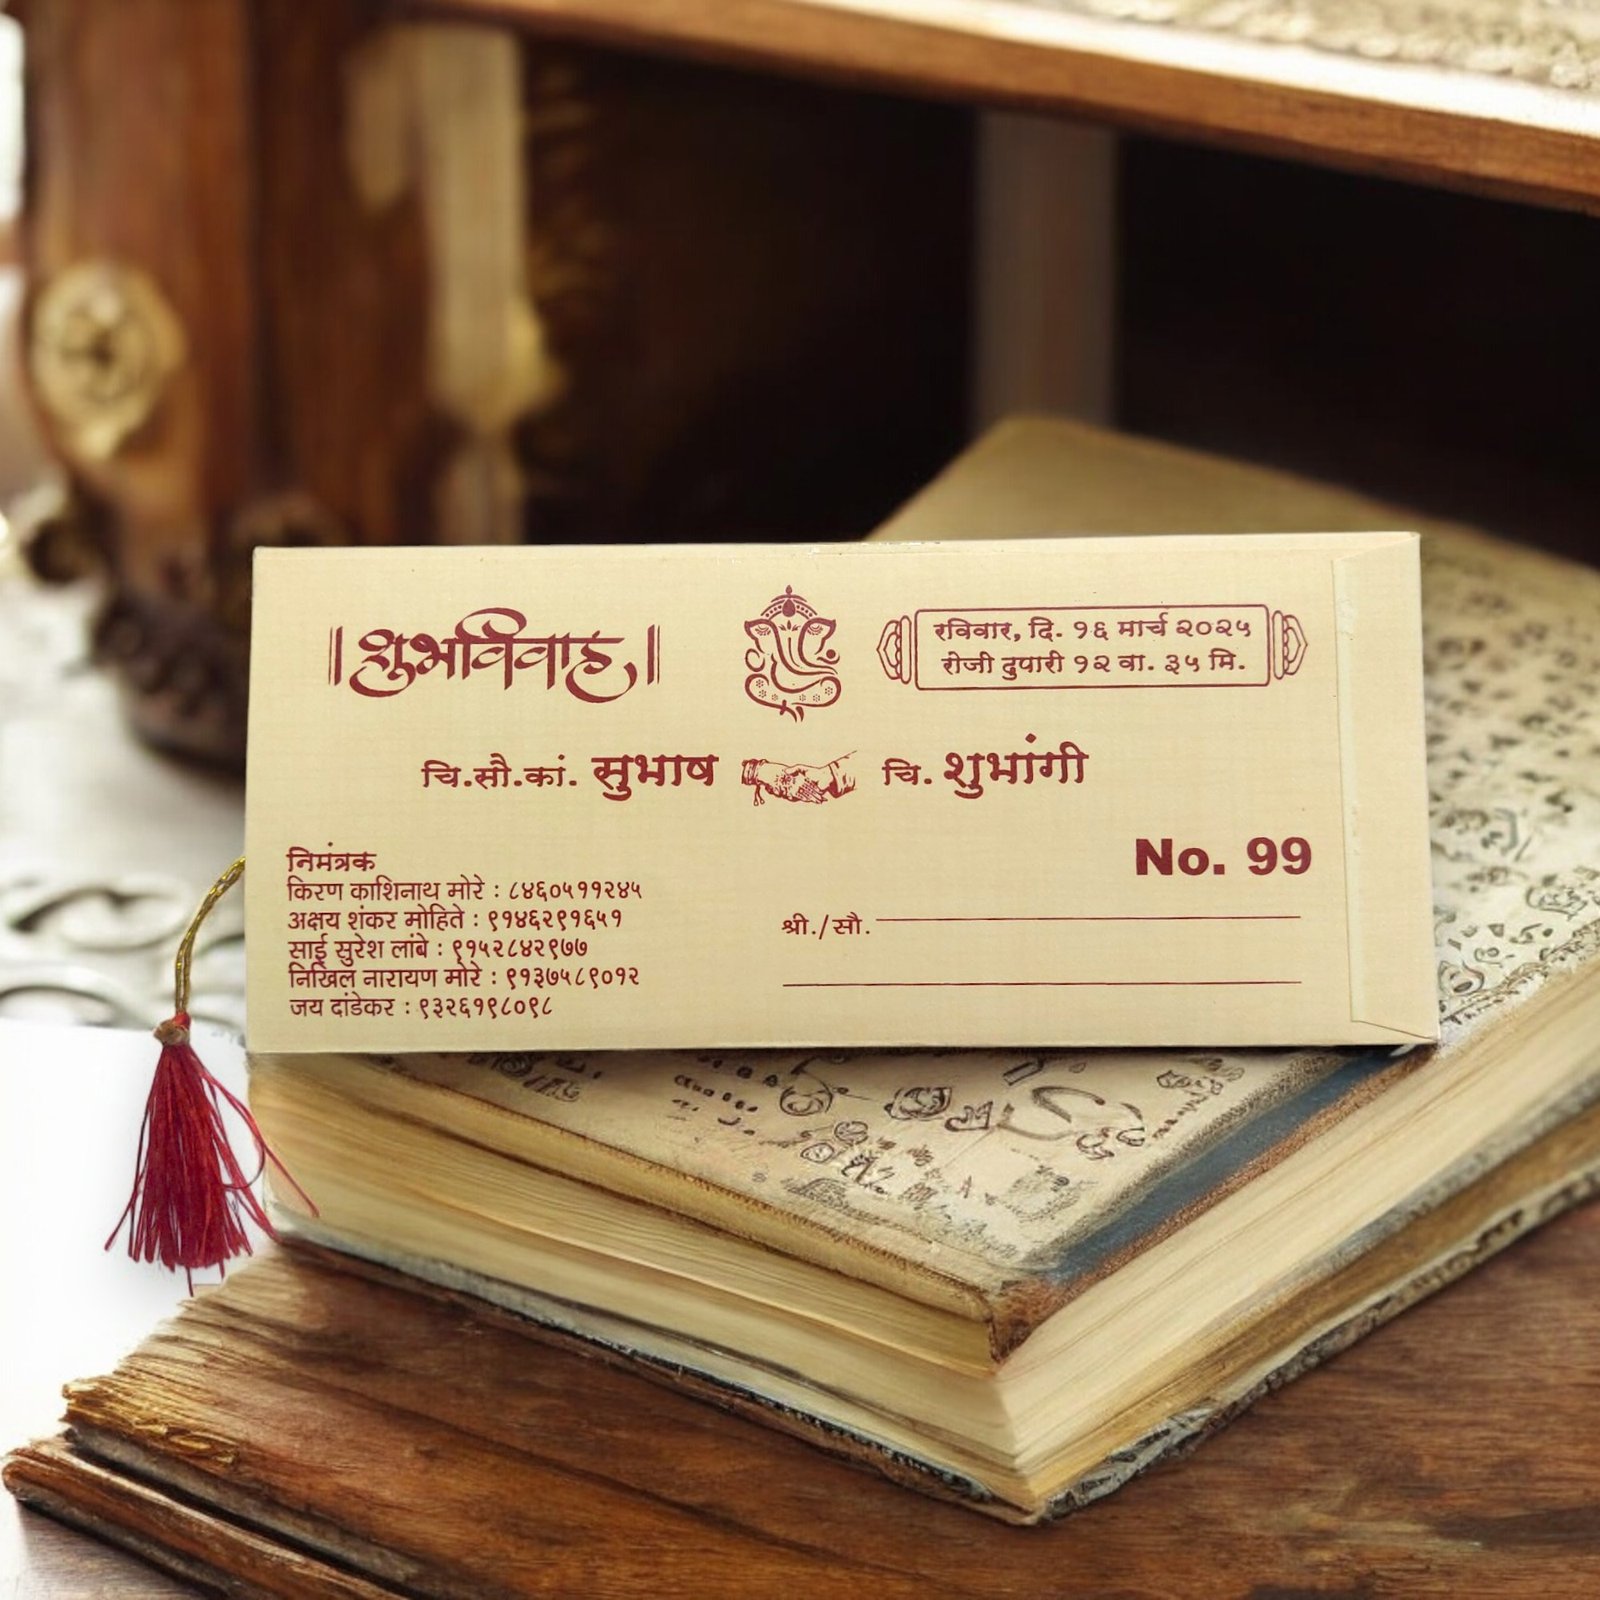 ॥ शुभविवाह ॥
रविवार, दि. १६ मार्च २०२५
रोजी दुपारी १२ वा. ३५ मि.
चि.सौ.कां. सुभाष चि. शुभांगी
निमंत्रक
किरण काशिनाथ मोरे : ८४६०५११२४५
अक्षय शंकर मोहिते : ९१४६२९१६५१
साई सुरेश लांबे : ९१५२८४२९७७
निखिल नारायण मोरे : ९१३७५८९०१२
जय दांडेकर : ९३२६१९८०९८
No. 99
श्री./सौ.